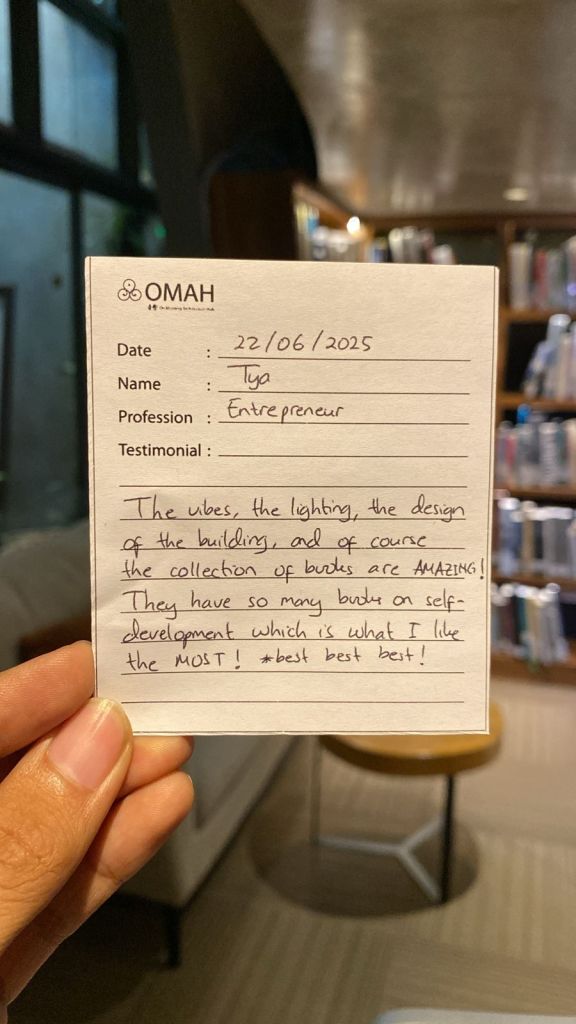 OMAH
Date : 22/06/2025
Name : Tya
Profession : Entrepreneur
Testimonial :
The vibes, the lighting, the design
of the building, and of course
the collection of books are AMAZING!
They have so many books on self-
development which is what I like
the MOST! *best best best!